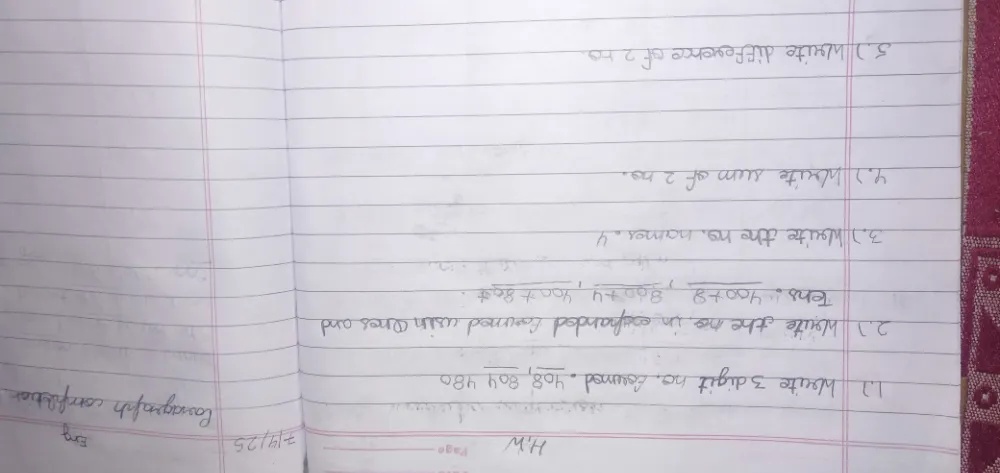 Page
H.W
1.) Write 3 digit no. formed. 408, 804 480
2.) Write the no in expanded formed with Ones and
Tens. 400+8, 800+4, 400+80
3.) Write the no. names. 4
4.) Write sum of 2 no.
5.) Write difference of 2 no.
7/4/25
Eng
Paragraph completion